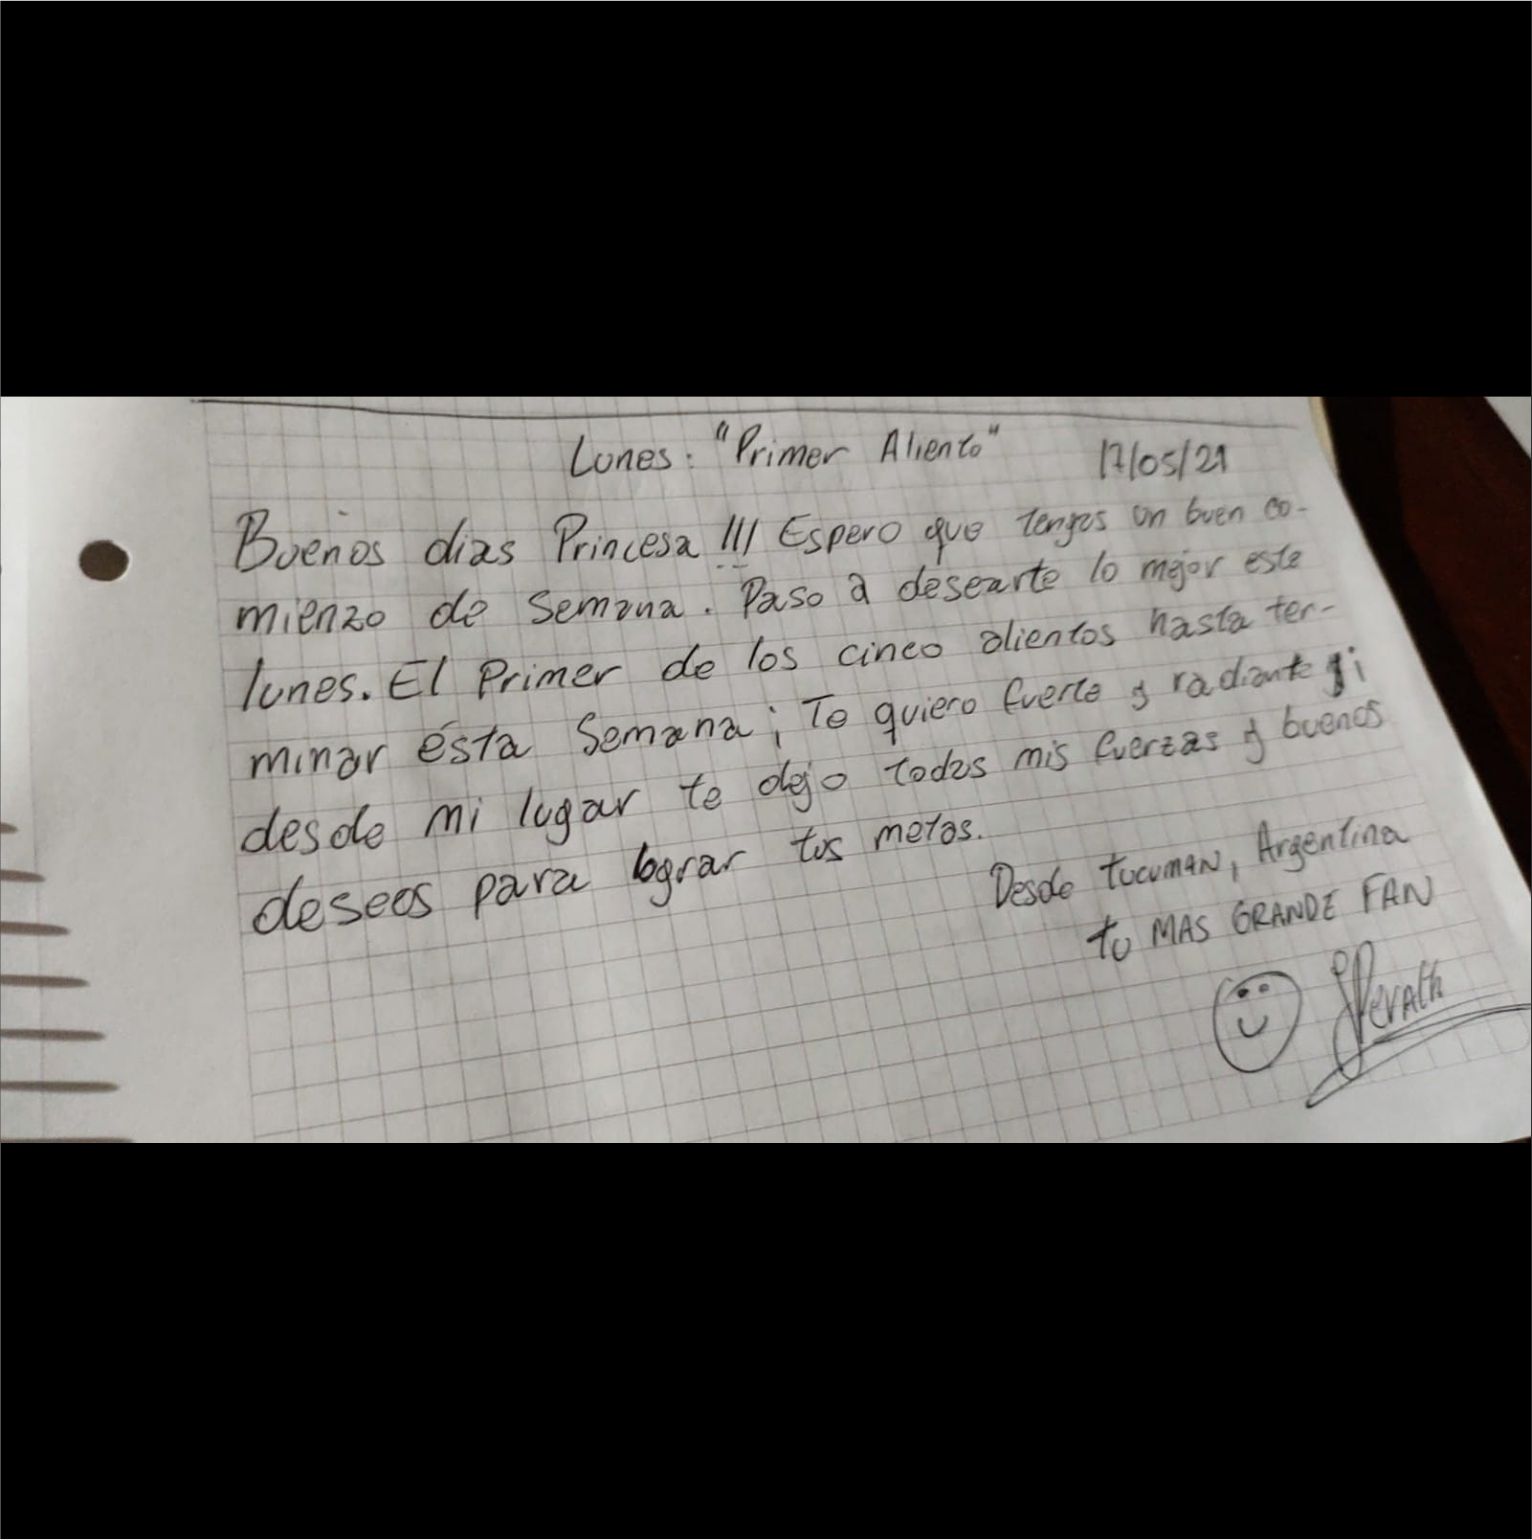 Lunes: "Primer Aliento" 17/05/21
Buenos dias Princesa !!! Espero que tengas un buen co-
mienzo de semana. Paso a desearte lo mejor este
lunes. El Primer de los cinco alientos hasta ter-
minar ésta Semana; Te quiero fuerte y radiante y
desde mi lugar te dejo todas mis fuerzas y buenos
deseos para lograr tus metas.
Desde TUCUMAN, Argentina
tu MAS GRANDE FAN